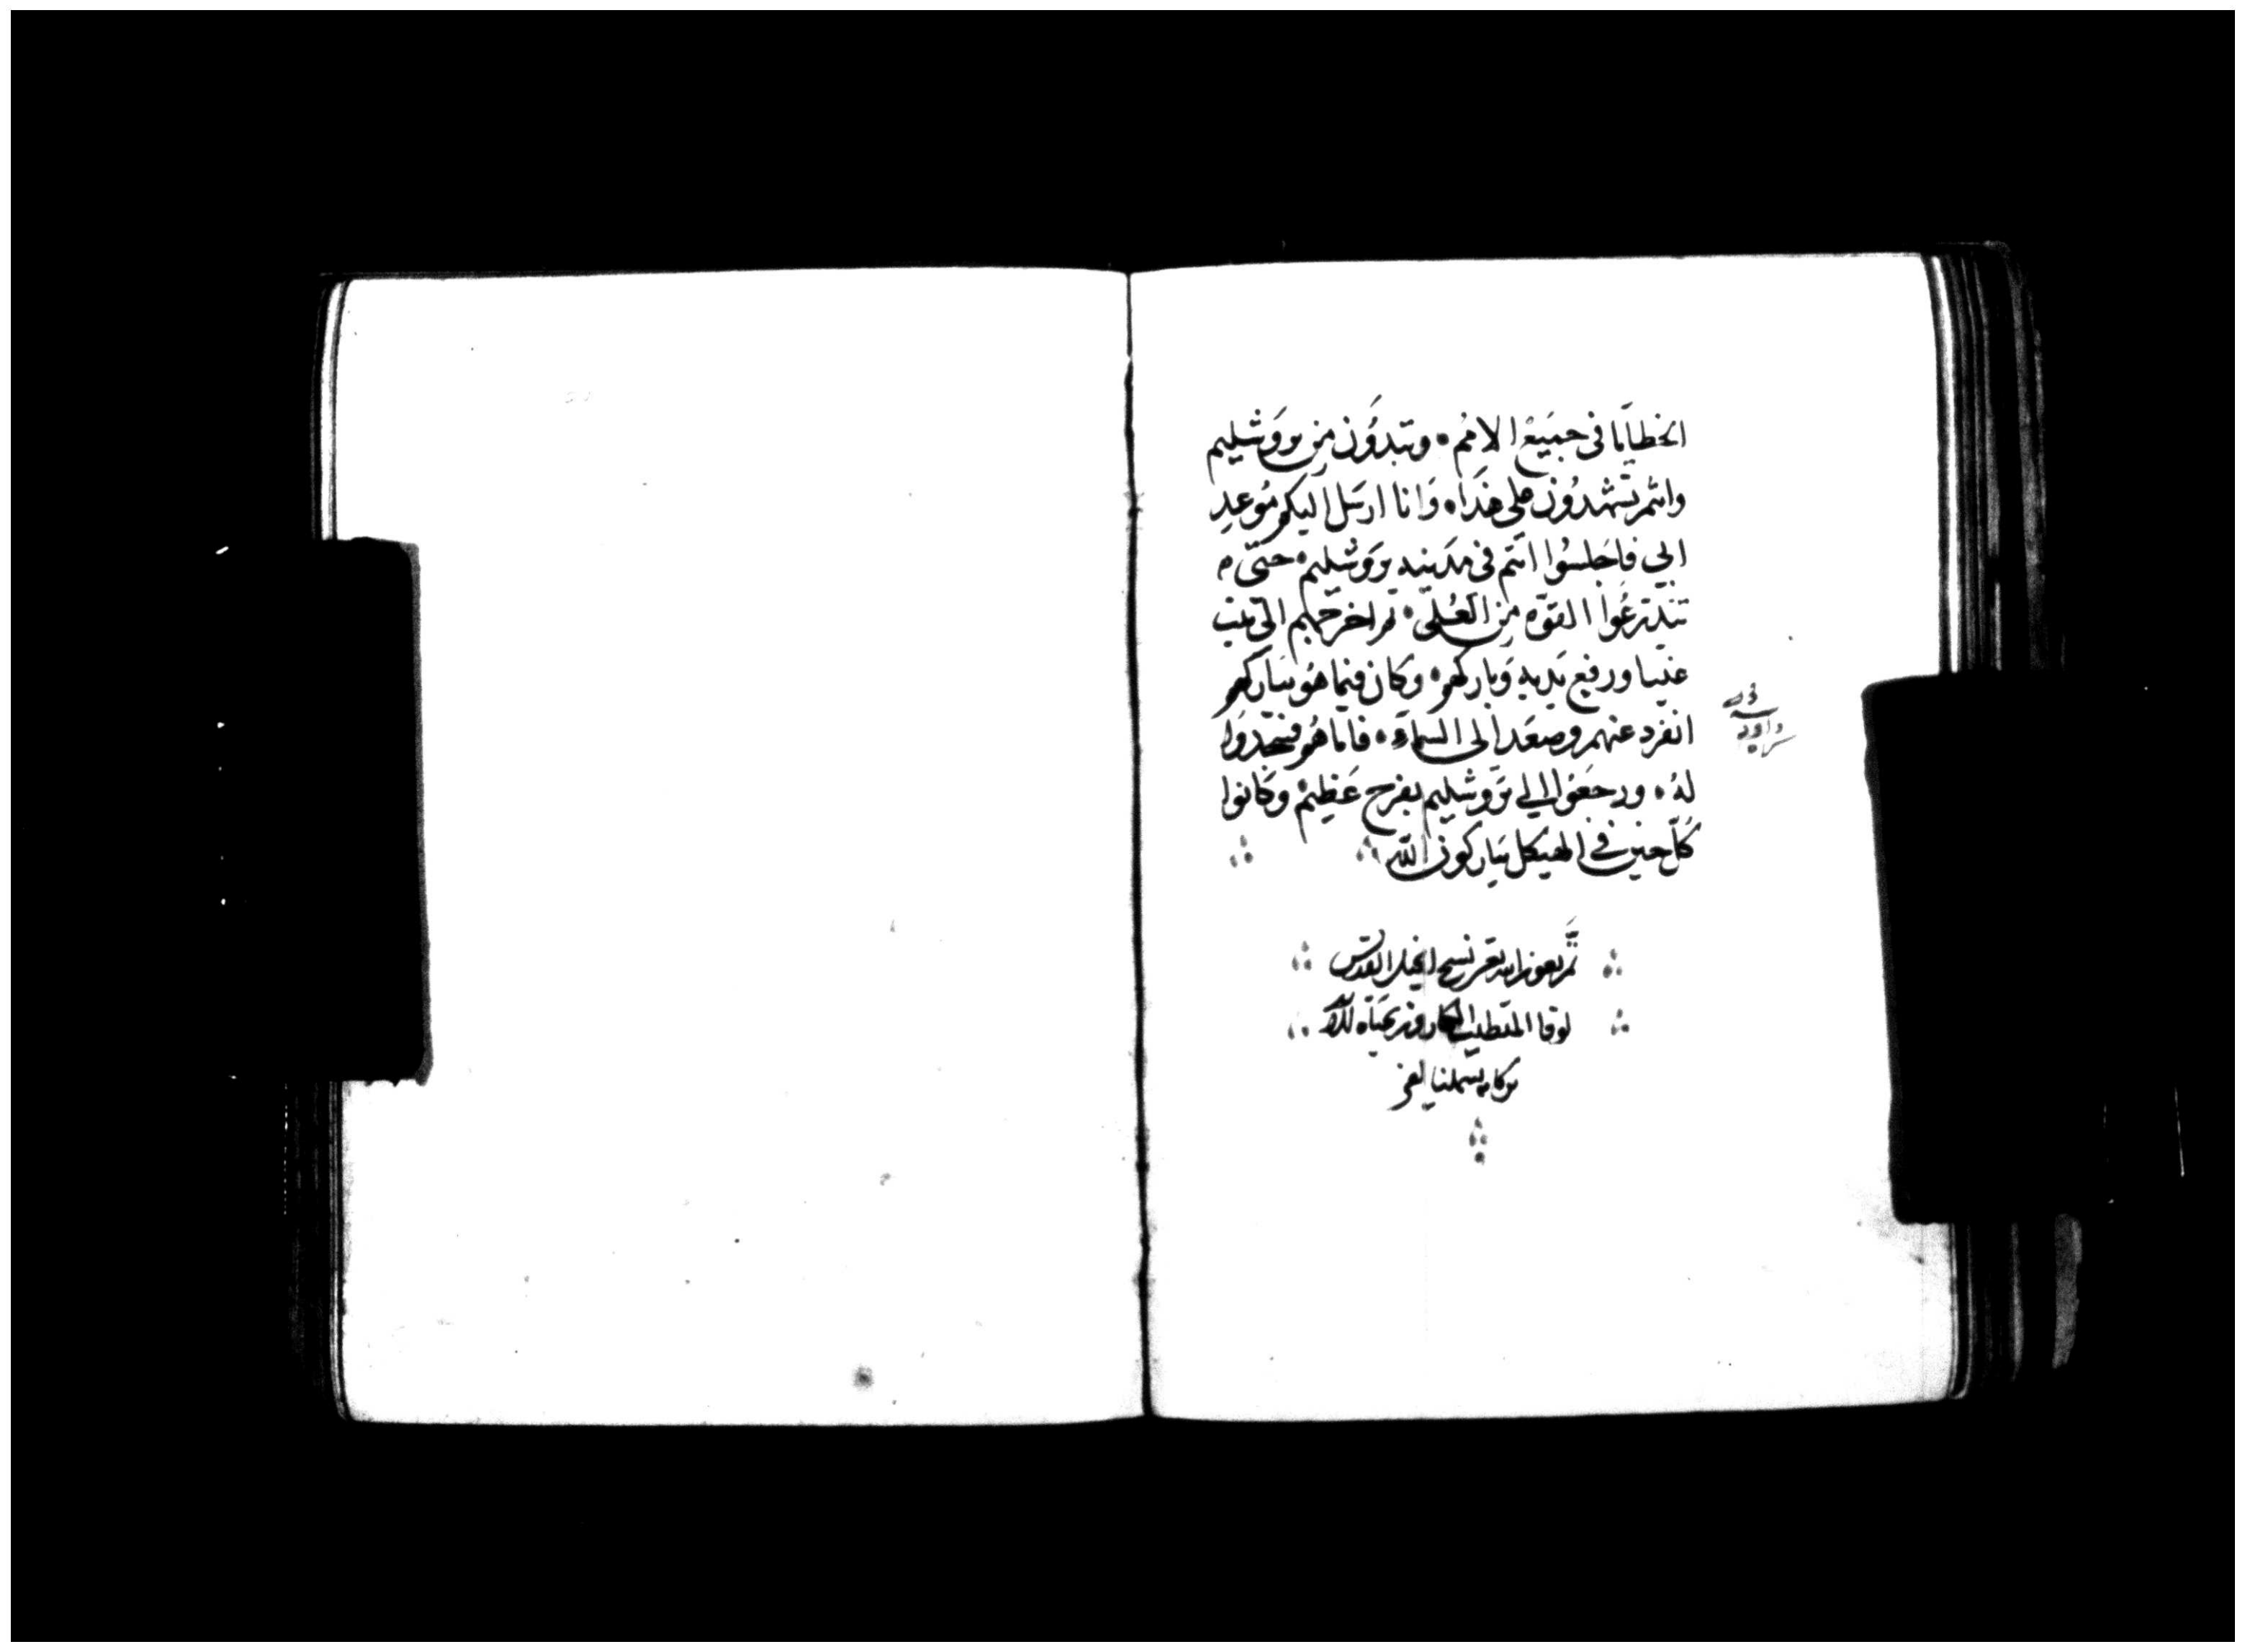 الخطايَا في جميَع الامُم ۰ وتبدوَن مِن يروَشليم
وانتم تشهدوُن على هَذا ۰ وَانا ارسَل اليكم مَوعدِ
ابي فاجَلسُوا انتم في مدَينه يروَشليم ۰ حتى
تتدّرعُوا القوّه مِن العُلى ۰ ثم اخرجَهم الى بيت
عَنيا ورفع يدَيهِ وَباركهم ۰ وكان فيما هوُ يباركهم
انفرد عنهم وصعَد الى السماَء ۰ فاما هُم فسَجدوَا
لهُ ۰ ورجعَوُا الي يرَوشليم بفرح عَظيم وكَانوا
كُلّ حين في الهيكل يبَاركون اللّه
تمَّ بعون الله تعَ نسخ انجيل القدّيس
لوقا المتطبب
بركاته تشملنا